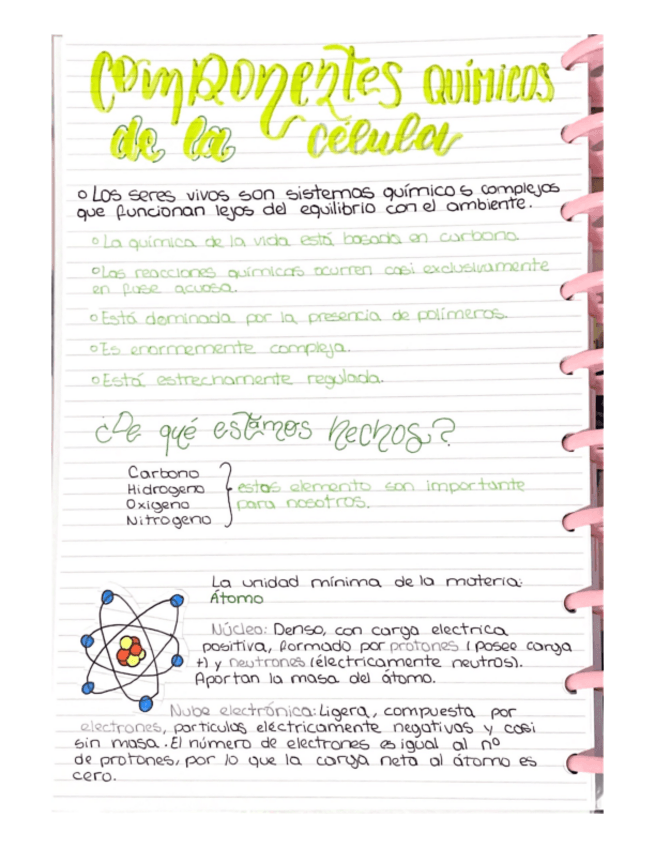 Componentes químicos
de la célula
Los seres vivos son sistemas químicos complejos
que funcionan lejos del equilibrio con el ambiente.
La química de la vida está basada en carbono.
Las reacciones químicas ocurren casi exclusivamente
en fase acuosa.
Está dominada por la presencia de polímeros.
Es enormemente compleja.
Está estrechamente regulada.
¿De qué estamos hechos?
Carbono
Hidrogeno
Oxigeno
Nitrogeno
estos elemento son importante
para nosotros.
La unidad mínima de la materia:
Átomo
Núcleo: Denso, con carga electrica
positiva, formado por protones (posee carga
+) y neutrones (électricamente neutros).
Aportan la masa del átomo.
Nube electrónica: Ligera, compuesta por
electrones, partículas eléctricamente negativas y casi
sin masa. El número de electrones es igual al nº
de protones, por lo que la carga neta al átomo es
cero.